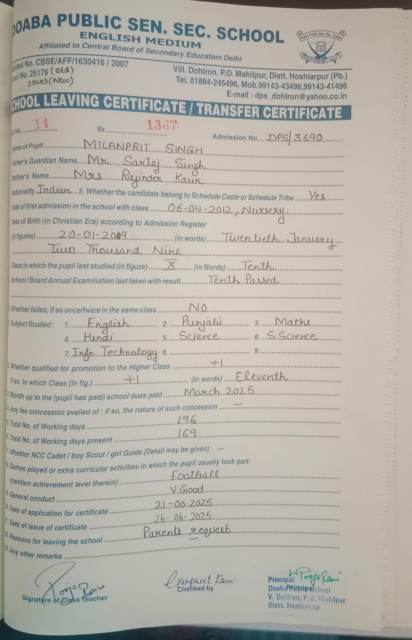 OABA PUBLIC SEN. SEC. SCHOOL
ENGLISH MEDIUM
Affiliated to Central Board of Secondary Education Delhi
No. CBSE/AFF/1630416 / 2007
No. 25176 (old)
20483 (New)
Vill. Dohlron, P.O. Mahilpur, Distt. Hoshiarpur (Pb.)
Tel. 01884-245496, Mob.99143-43496,99143-41496
E-mail : dps_dohlron@yahoo.co.in
HOOL LEAVING CERTIFICATE / TRANSFER CERTIFICATE
No. 14 Sr. 1367 Admission No. DPS/3690
Name of Pupil MILANPRIT SINGH
Father's Guardian Name Mr. Sartaj Singh
Mother's Name Mrs Rajinder Kaur
Nationality Indian 5. Whether the candidate belong to Schedule Caste or Schedule Tribe Yes
Date of first admission in the school with class 06-04-2012, Nursery
Date of Birth (in Christian Era) according to Admission Register
(in figures) 20-01-2009 (in words) Twentieth January
Two Thousand Nine
Class in which the pupil last studied (in figure) X (in Words) Tenth
School / Board Annual Examination last taken with result Tenth Passed
Whether failed, if so once/twice in the same class NO
Subject Studied : 1. English 2. Punjabi 3. Maths
4. Hindi 5. Science 6. S.Science
7. Info. Technology 8. 9.
Whether qualified for promotion to the Higher Class +1
If so, to which Class (in fig.) +1 (in words) Eleventh
Month up to the (pupil has paid) school dues paid March 2025
Any fee concession availed of : if so, the nature of such concession —
Total No. of Working days 196
Total No. of Working days present 169
Whether NCC Cadet / boy Scout / girl Guide (Detail may be given) —
Games played or extra curricular activities in which the pupil usually took part
(mention achievement level therein) Football
General conduct V.Good
Date of application for certificate 21-06-2025
Date of issue of certificate 26-06-2025
Reasons for leaving the school Parents request
Any other remarks
Pooja Rani
Signature of Class Teacher
Checked by
Principal
Principal
V. Dohlron, P.O. Mahilpur
Distt. Hoshiarpur